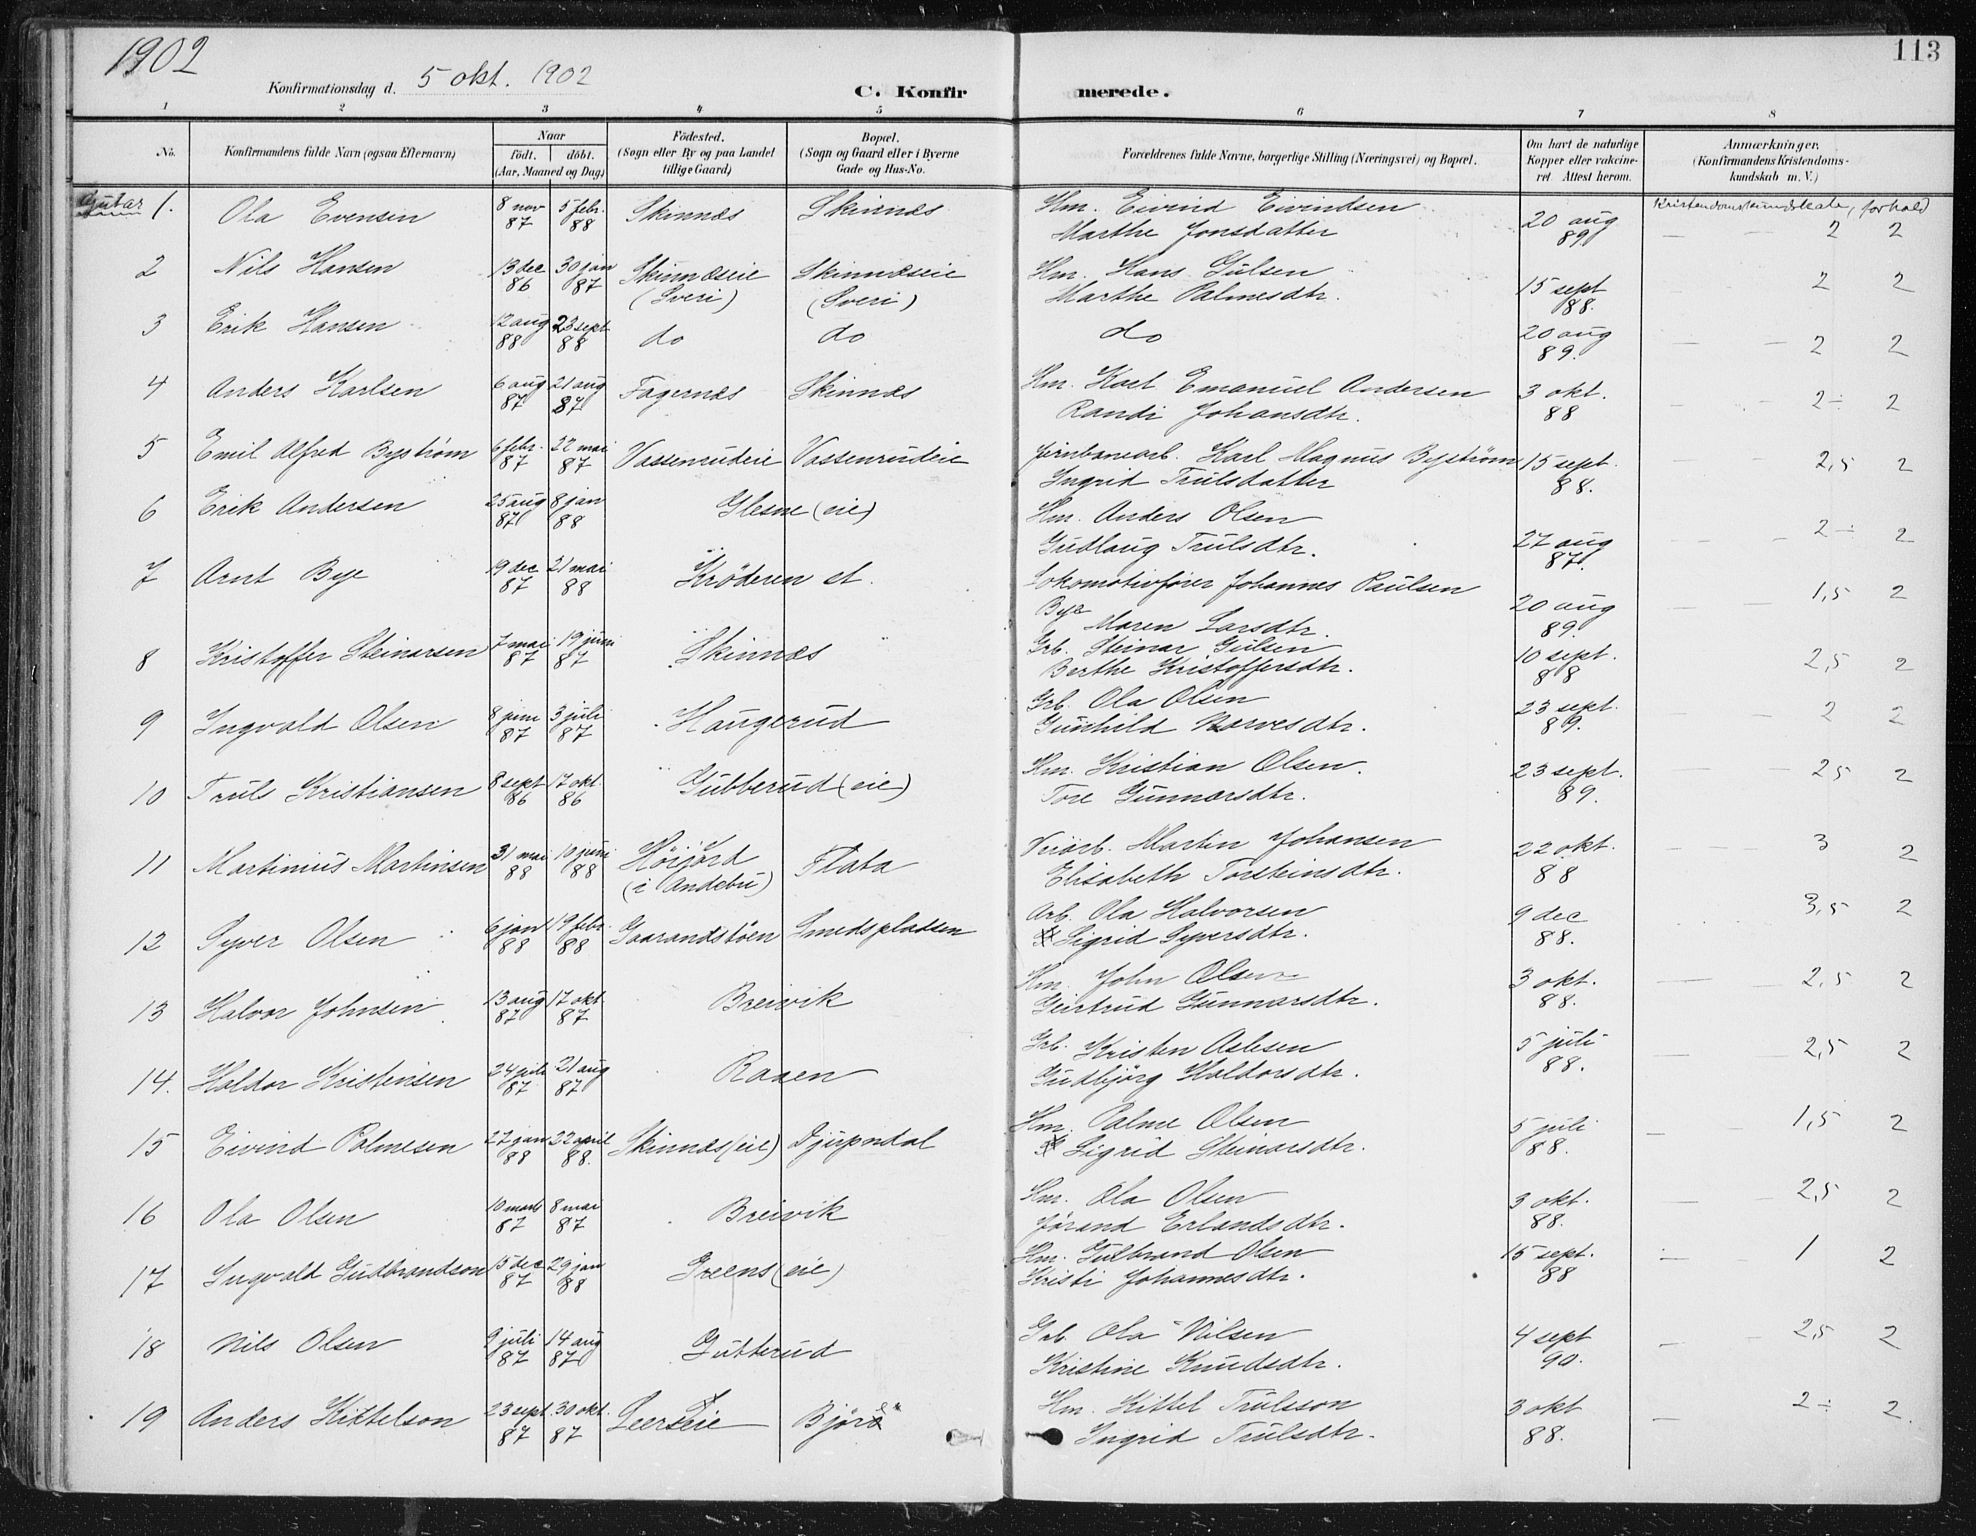 1902
113
Konfirmationsdag d. 5 okt. 1902
C. Konfirmerede.
1 2 3 4 5 6 7 8
No.
Konfirmandens fulde Navn (ogsaa Efternavn)
Naar
födt. döbt.
(Aar, Maaned og Dag)
Födested.
(Sogn eller By og paa Landet
tillige Gaard)
Bopæl.
(Sogn og Gaard eller i Byerne
Gade og Hus-No.
Forældrenes fulde Navne, borgerlige Stilling (Næringsvei) og Bopæl.
Om havt de naturlige
Kopper eller vakcine-
ret. Attest herom.
Anmærkninger.
(Konfirmandens Kristendoms-
kundskab m. V.)
Gutar
Kristendomskundskab, forhold
1. Ola Evensen 8 nov 87 5 febr. 88 Skinnæs Skinnæs Hm. Eivind Eivindsen 20 aug 89 — — 2 2
Marthe Jonsdatter
2 Nils Hansen 13 dec 86 30 jan 87 Skinnæseie (Sveri) Skinnæseie (Sveri) Hm. Hans Gulsen 15 sept 88. 2 2
Marthe Palmesdtr.
3 Erik Hansen 12 aug 88 23 sept 88 do do do 20 aug 89. — — 2 2
4 Anders Karlsen 6 aug 87 21 aug 87 Fagernæs Skinnæs Hm. Karl Emanuel Andersen 3 okt. 88 — — 2 ÷ 2
Randi Johansdtr.
5 Emil Alfred Byström 6 febr. 87 22 mai 87 Vassenrudeie Vassenrudeie Jernbanearb. Karl Magnus Byström 15 sept. 88. 2,5 2
Ingrid Trulsdatter
6 Erik Andersen 25 aug 87 8 jan 88 Glesne (eie) Hm. Anders Olsen 27 aug 87. — — 2 ÷ 2
Gudlaug Trulsdtr.
7 Arnt Bye 19 dec 87 21 mai 88 Krøderen st. Lokomotivfører Johannes Paulsen 20 aug 89. — — 1,5 2
Bye Maren Larsdtr.
8 Kristoffer Steinarsen 7 mai 87 19 juni 87 Skinnæs Grb. Steinar Gulsen 10 sept. 88 2,5 2
Berthe Kristoffersdtr.
9 Ingvald Olsen 8 juni 87 3 juli 87 Haugerud Grb. Ola Olsen 23 sept. 89. — — 2 2
Gunhild Narvesdtr.
10 Truls Kristiansen 8 sept 86 17 okt. 86 Gubberud (eie) Hm. Kristian Olsen. 23 sept. 89. 2,5 2
Tore Gunnarsdtr.
11 Martinius Martinsen 31 mai 88 10 juni 88 (i Andebu) Flata Martin Johansen 22 okt. 88 — — 3 2
Elisabeth Torsteinsdtr.
12 Syver Olsen 6 jan 88 19 febr. 88 Gaarandstöen Smedspladsen Arb. Ola Halvorsen 9 dec 88. 3,5 2
Sigrid Syversdtr.
13 Halvor Johnsen 13 aug 87 17 okt 87 Breivik Hm. John Olsen 3 okt. 88. — — 2,5 2
Geirtrud Gunnarsdtr.
14. Haldor Kristensen 24 juli 87 21 aug 87 Raaen Grb. Kristen Aslesen 5 juli 88. — — 2,5 2
Gudbjörg Haldorsdtr.
15 Eivind Palmesen 27 jan 88 22 april 88. Skinnæs (eie) Djupndal Hm. Palme Olsen 5 juli 88. — — 1,5 2
Sigrid Steinarsdtr.
16 Ola Olsen 10 marts 87 8 mai 87 Breivik Hm. Ola Olsen 3 okt. 88. — — 2,5 2
Jörand Erlandsdtr.
17 Ingvald Gudbrandson 15 dec 87 29 jan 88 Greens (eie) Hm. Gulbrand Olsen 15 sept. 88 — — 1 2
Kristi Johannesdtr.
18 Nils Olsen 9 juli 87 14 aug 87 Gubberud Grb. Ola Nilsen 4 sept 90. — — 2,5 2
Kristine Knudsdtr.
19 Anders Kittelson 23 sept. 87 30 okt. 87 Leerseie Hm. Kittel Trulsson 3 okt 88. — — 2 ÷ 2.
Ingrid Trulsdtr.